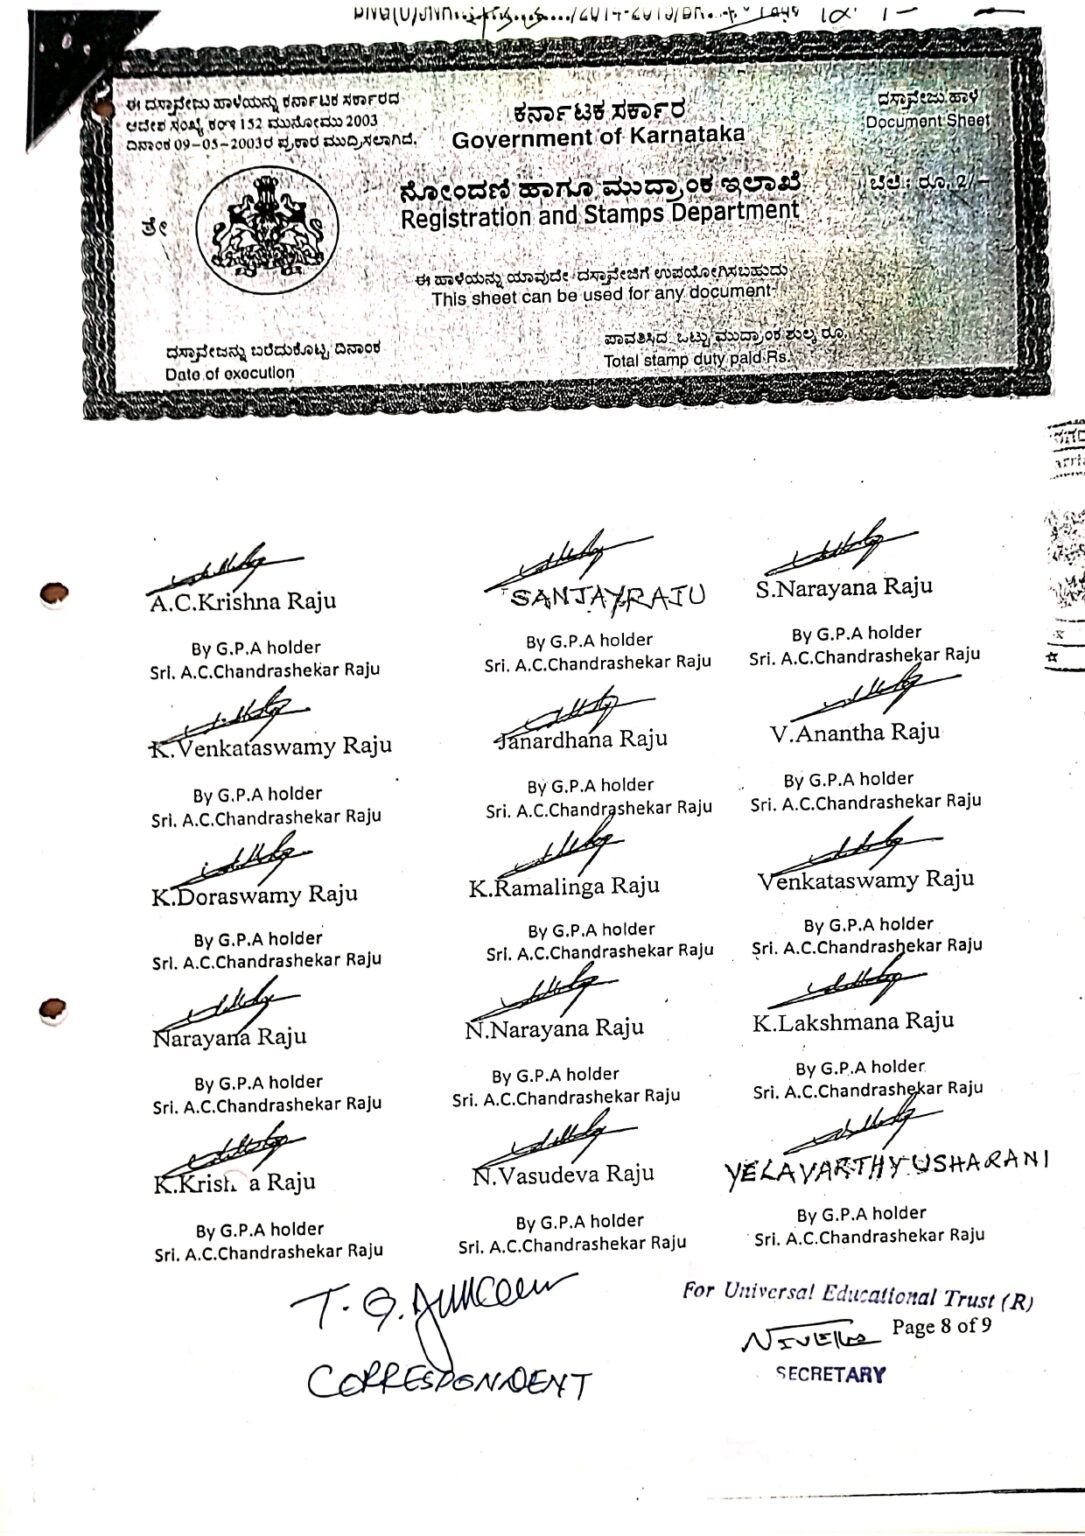 ಈ ದಸ್ತಾವೇಜು ಹಾಳೆಯನ್ನು ಕರ್ನಾಟಕ ಸರ್ಕಾರದ
ಆದೇಶ ಸಂಖ್ಯೆ ಕಂಇ 152 ಮುನೋಮು 2003
ದಿನಾಂಕ 09-05-2003ರ ಪ್ರಕಾರ ಮುದ್ರಿಸಲಾಗಿದೆ.
ಕರ್ನಾಟಕ ಸರ್ಕಾರ
Government of Karnataka
ದಸ್ತಾವೇಜು ಹಾಳೆ
Document Sheet
ನೋಂದಣಿ ಹಾಗೂ ಮುದ್ರಾಂಕ ಇಲಾಖೆ
Registration and Stamps Department
ಬೆಲೆ : ರೂ. 2/-
ಈ ಹಾಳೆಯನ್ನು ಯಾವುದೇ ದಸ್ತಾವೇಜಿಗೆ ಉಪಯೋಗಿಸಬಹುದು
This sheet can be used for any document
ದಸ್ತಾವೇಜನ್ನು ಬರೆದುಕೊಟ್ಟ ದಿನಾಂಕ
Date of execution
ಪಾವತಿಸಿದ ಒಟ್ಟು ಮುದ್ರಾಂಕ ಶುಲ್ಕ ರೂ.
Total stamp duty paid Rs.
A.C.Krishna Raju SANJAYRAJU S.Narayana Raju
By G.P.A holder By G.P.A holder By G.P.A holder
Sri. A.C.Chandrashekar Raju Sri. A.C.Chandrashekar Raju Sri. A.C.Chandrashekar Raju
K.Venkataswamy Raju Janardhana Raju V.Anantha Raju
By G.P.A holder By G.P.A holder By G.P.A holder
Sri. A.C.Chandrashekar Raju Sri. A.C.Chandrashekar Raju Sri. A.C.Chandrashekar Raju
K.Doraswamy Raju K.Ramalinga Raju Venkataswamy Raju
By G.P.A holder By G.P.A holder By G.P.A holder
Sri. A.C.Chandrashekar Raju Sri. A.C.Chandrashekar Raju Sri. A.C.Chandrashekar Raju
Narayana Raju N.Narayana Raju K.Lakshmana Raju
By G.P.A holder By G.P.A holder By G.P.A holder
Sri. A.C.Chandrashekar Raju Sri. A.C.Chandrashekar Raju Sri. A.C.Chandrashekar Raju
K.Krish a Raju N.Vasudeva Raju YELAVARTHY USHARANI
By G.P.A holder By G.P.A holder By G.P.A holder
Sri. A.C.Chandrashekar Raju Sri. A.C.Chandrashekar Raju Sri. A.C.Chandrashekar Raju
For Universal Educational Trust (R)
Page 8 of 9
CORRESPONDENT
SECRETARY